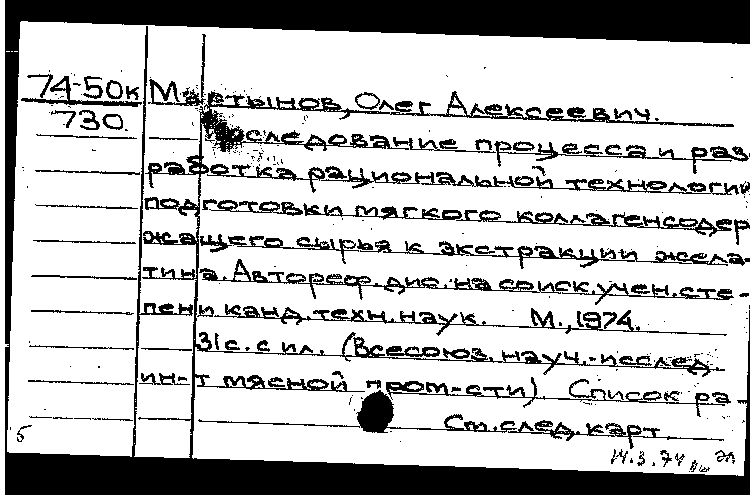 74-50к Мартынов, Олег Алексеевич.
730 Исследование процесса и раз-
работка рациональной технологии
подготовки мягкого коллагенсодер-
жащего сырья к экстракции жела-
тина. Автореф. дис. на соиск. учен. сте-
пени канд. техн. наук. М., 1974.
31 с. с ил. (Всесоюз. науч.-исслед.
ин-т мясной пром-сти) Список ра-
См. след. карт.
б 14.3.74